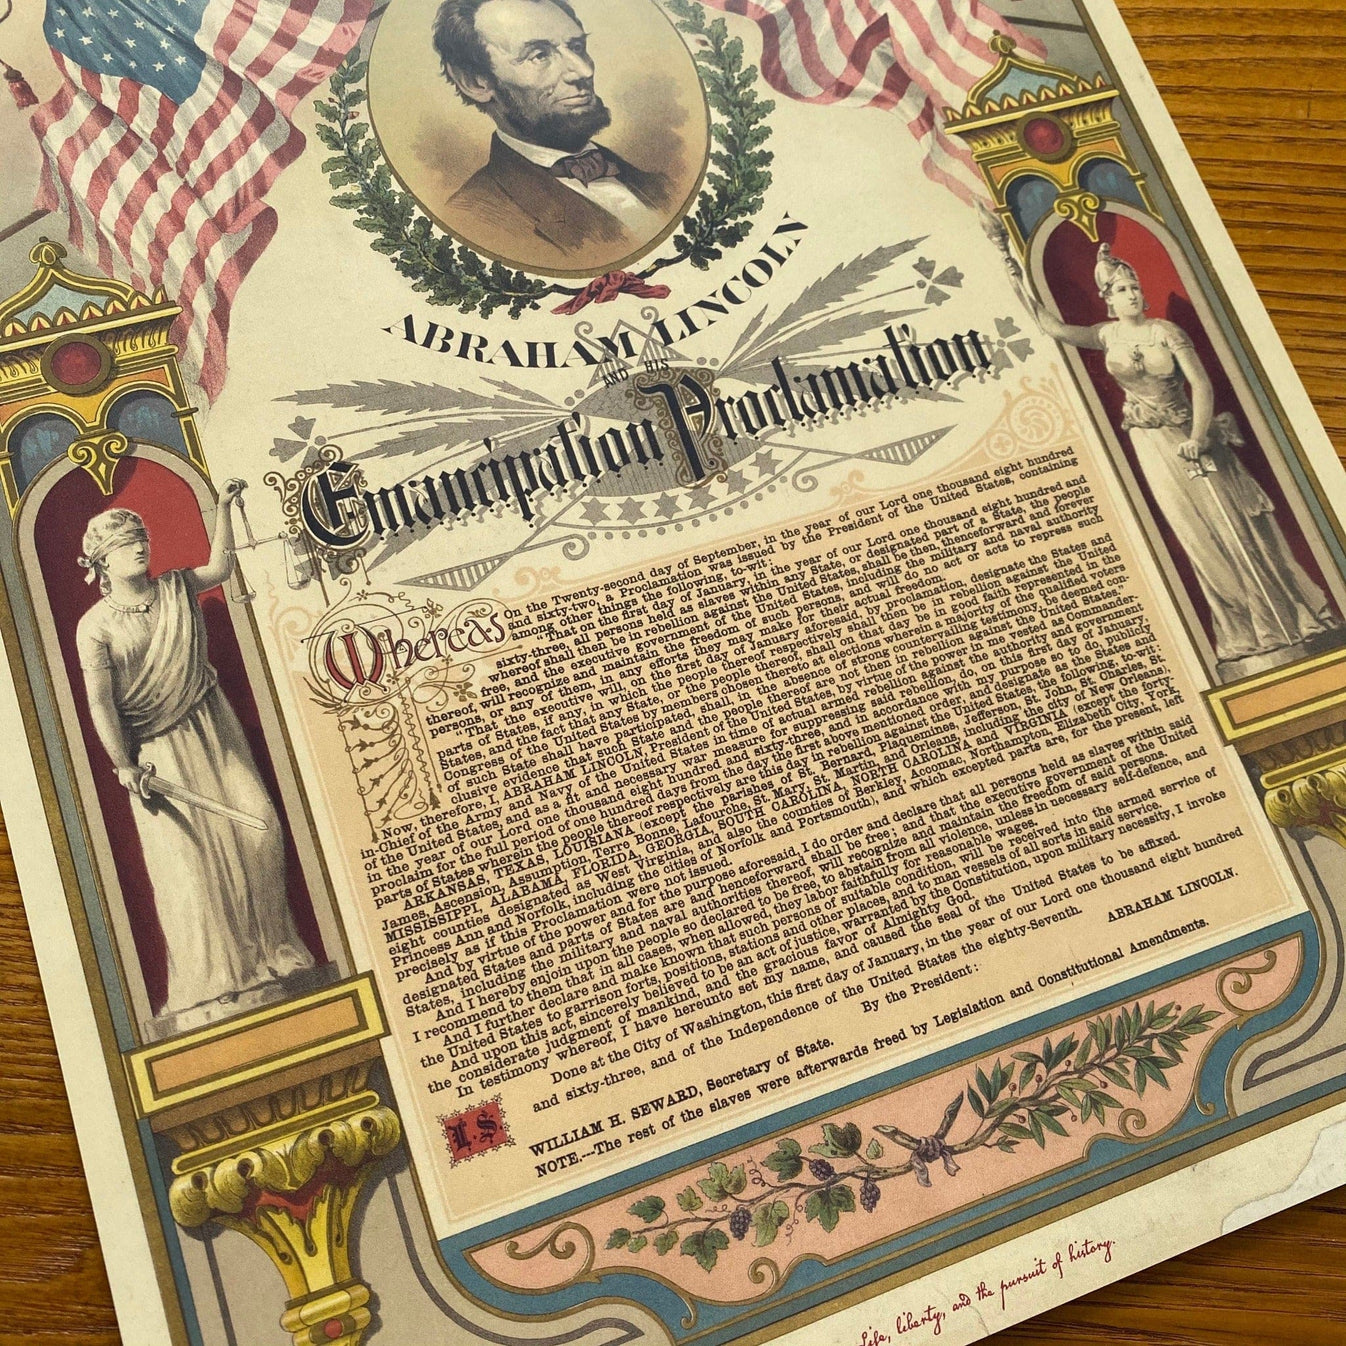 ABRAHAM LINCOLN
AND HIS
Emancipation Proclamation
Whereas
On the Twenty-second day of September, in the year of our Lord one thousand eight hundred
and sixty-two, a Proclamation was issued by the President of the United States, containing
among other things the following, to-wit:
"That on the first day of January, in the year of our Lord one thousand eight hundred and
sixty-three, all persons held as slaves within any State, or designated part of a State, the people
whereof shall then be in rebellion against the United States, shall be then, thenceforward and forever
free, and the executive government of the United States, including the military and naval authority
thereof, will recognize and maintain the freedom of such persons, and will do no act or acts to repress such
persons, or any of them, in any efforts they may make for their actual freedom.
"That the executive will, on the first day of January aforesaid, by proclamation, designate the States and
parts of States, if any, in which the people thereof respectively shall then be in rebellion against the United
States, and the fact that any State, or the people thereof, shall on that day be in good faith represented in the
Congress of the United States by members chosen thereto at elections wherein a majority of the qualified voters
of such State shall have participated, shall, in the absence of strong countervailing testimony, be deemed con-
clusive evidence that such State and the people thereof are not then in rebellion against the United States."
Now, therefore, I, ABRAHAM LINCOLN, President of the United States, by virtue of the power in me vested as Commander-
in-Chief of the Army and Navy of the United States in time of actual armed rebellion against the authority and government
of the United States, and as a fit and necessary war measure for suppressing said rebellion, do, on this first day of January,
in the year of our Lord one thousand eight hundred and sixty-three, and in accordance with my purpose so to do, publicly
proclaim for the full period of one hundred days from the day the first above mentioned order, and designate as the States and
parts of States wherein the people thereof respectively are this day in rebellion against the United States, the following, to-wit:
ARKANSAS, TEXAS, LOUISIANA (except the parishes of St. Bernard, Plaquemines, Jefferson, St. John, St. Charles, St.
James, Ascension, Assumption, Terre Bonne, Lafourche, St. Mary, St. Martin, and Orleans, including the city of New Orleans),
MISSISSIPPI, ALABAMA, FLORIDA, GEORGIA, SOUTH CAROLINA, NORTH CAROLINA and VIRGINIA (except the forty-
eight counties designated as West Virginia, and also the counties of Berkley, Accomac, Northampton, Elizabeth City, York,
Princess Ann and Norfolk, including the cities of Norfolk and Portsmouth), and which excepted parts are, for the present, left
precisely as if this Proclamation were not issued.
And by virtue of the power and for the purpose aforesaid, I do order and declare that all persons held as slaves within said
designated States and parts of States are and henceforward shall be free; and that the executive government of the United
States, including the military and naval authorities thereof, will recognize and maintain the freedom of said persons.
And I hereby enjoin upon the people so declared to be free, to abstain from all violence, unless in necessary self-defence, and
I recommend to them that in all cases, when allowed, they labor faithfully for reasonable wages.
And I further declare and make known that such persons of suitable condition, will be received into the armed service of
the United States to garrison forts, positions, stations and other places, and to man vessels of all sorts in said service.
And upon this act, sincerely believed to be an act of justice, warranted by the Constitution, upon military necessity, I invoke
the considerate judgment of mankind, and the gracious favor of Almighty God.
In testimony whereof, I have hereunto set my name, and caused the seal of the United States to be affixed.
Done at the City of Washington, this first day of January, in the year of our Lord one thousand eight hundred
and sixty-three, and of the Independence of the United States the eighty-Seventh.
ABRAHAM LINCOLN.
By the President:
L.S.
WILLIAM H. SEWARD, Secretary of State.
NOTE.---The rest of the slaves were afterwards freed by Legislation and Constitutional Amendments.
Life, liberty, and the pursuit of history.